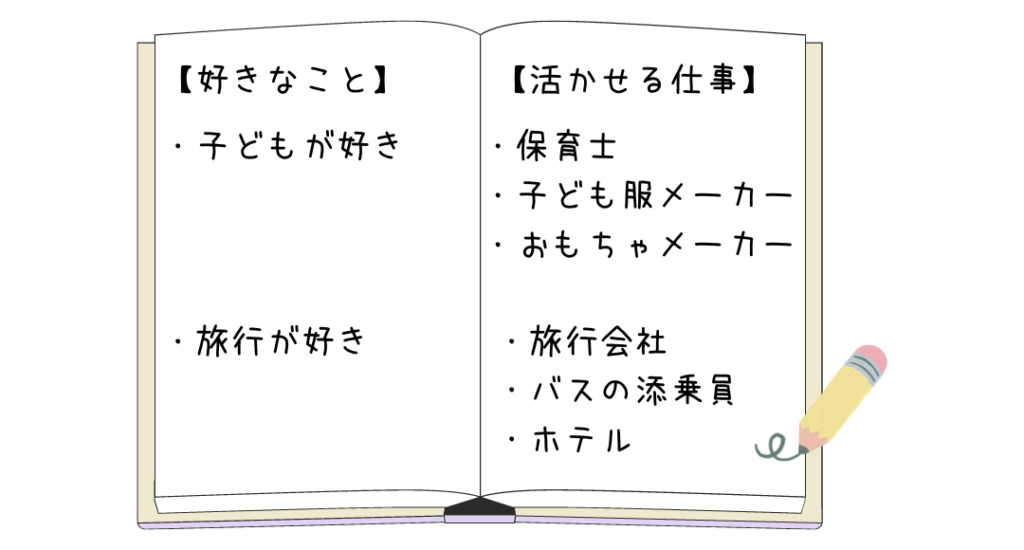 【好きなこと】
・子どもが好き
・旅行が好き
【活かせる仕事】
・保育士
・子ども服メーカー
・おもちゃメーカー
・旅行会社
・バスの添乗員
・ホテル